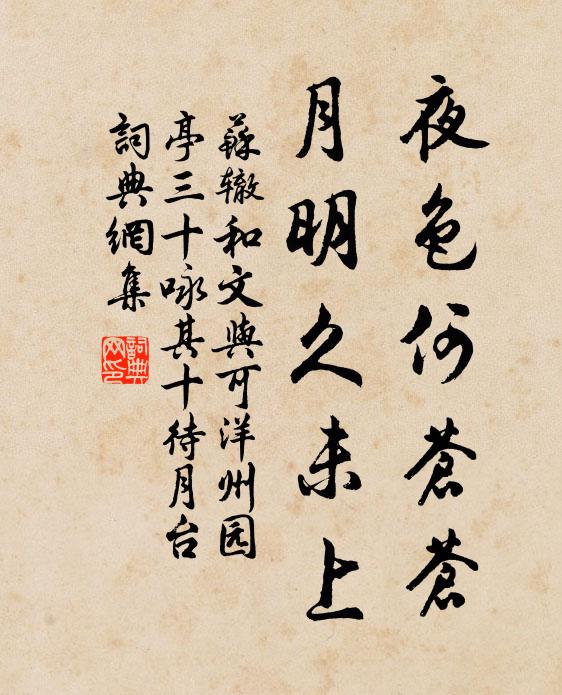 夜色何蒼蒼
月明久未上
蘇辙和文與可洋州园
亭三十咏其十待月台
詞典網集
詞典网印